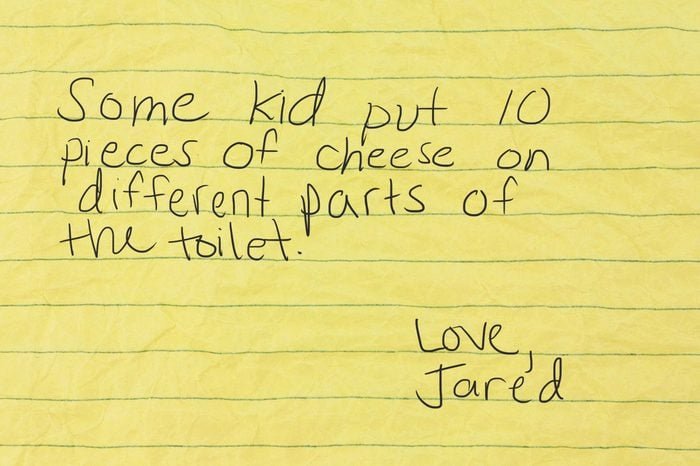 Some kid put 10
pieces of cheese on
different parts of
the toilet.
Love,
Jared